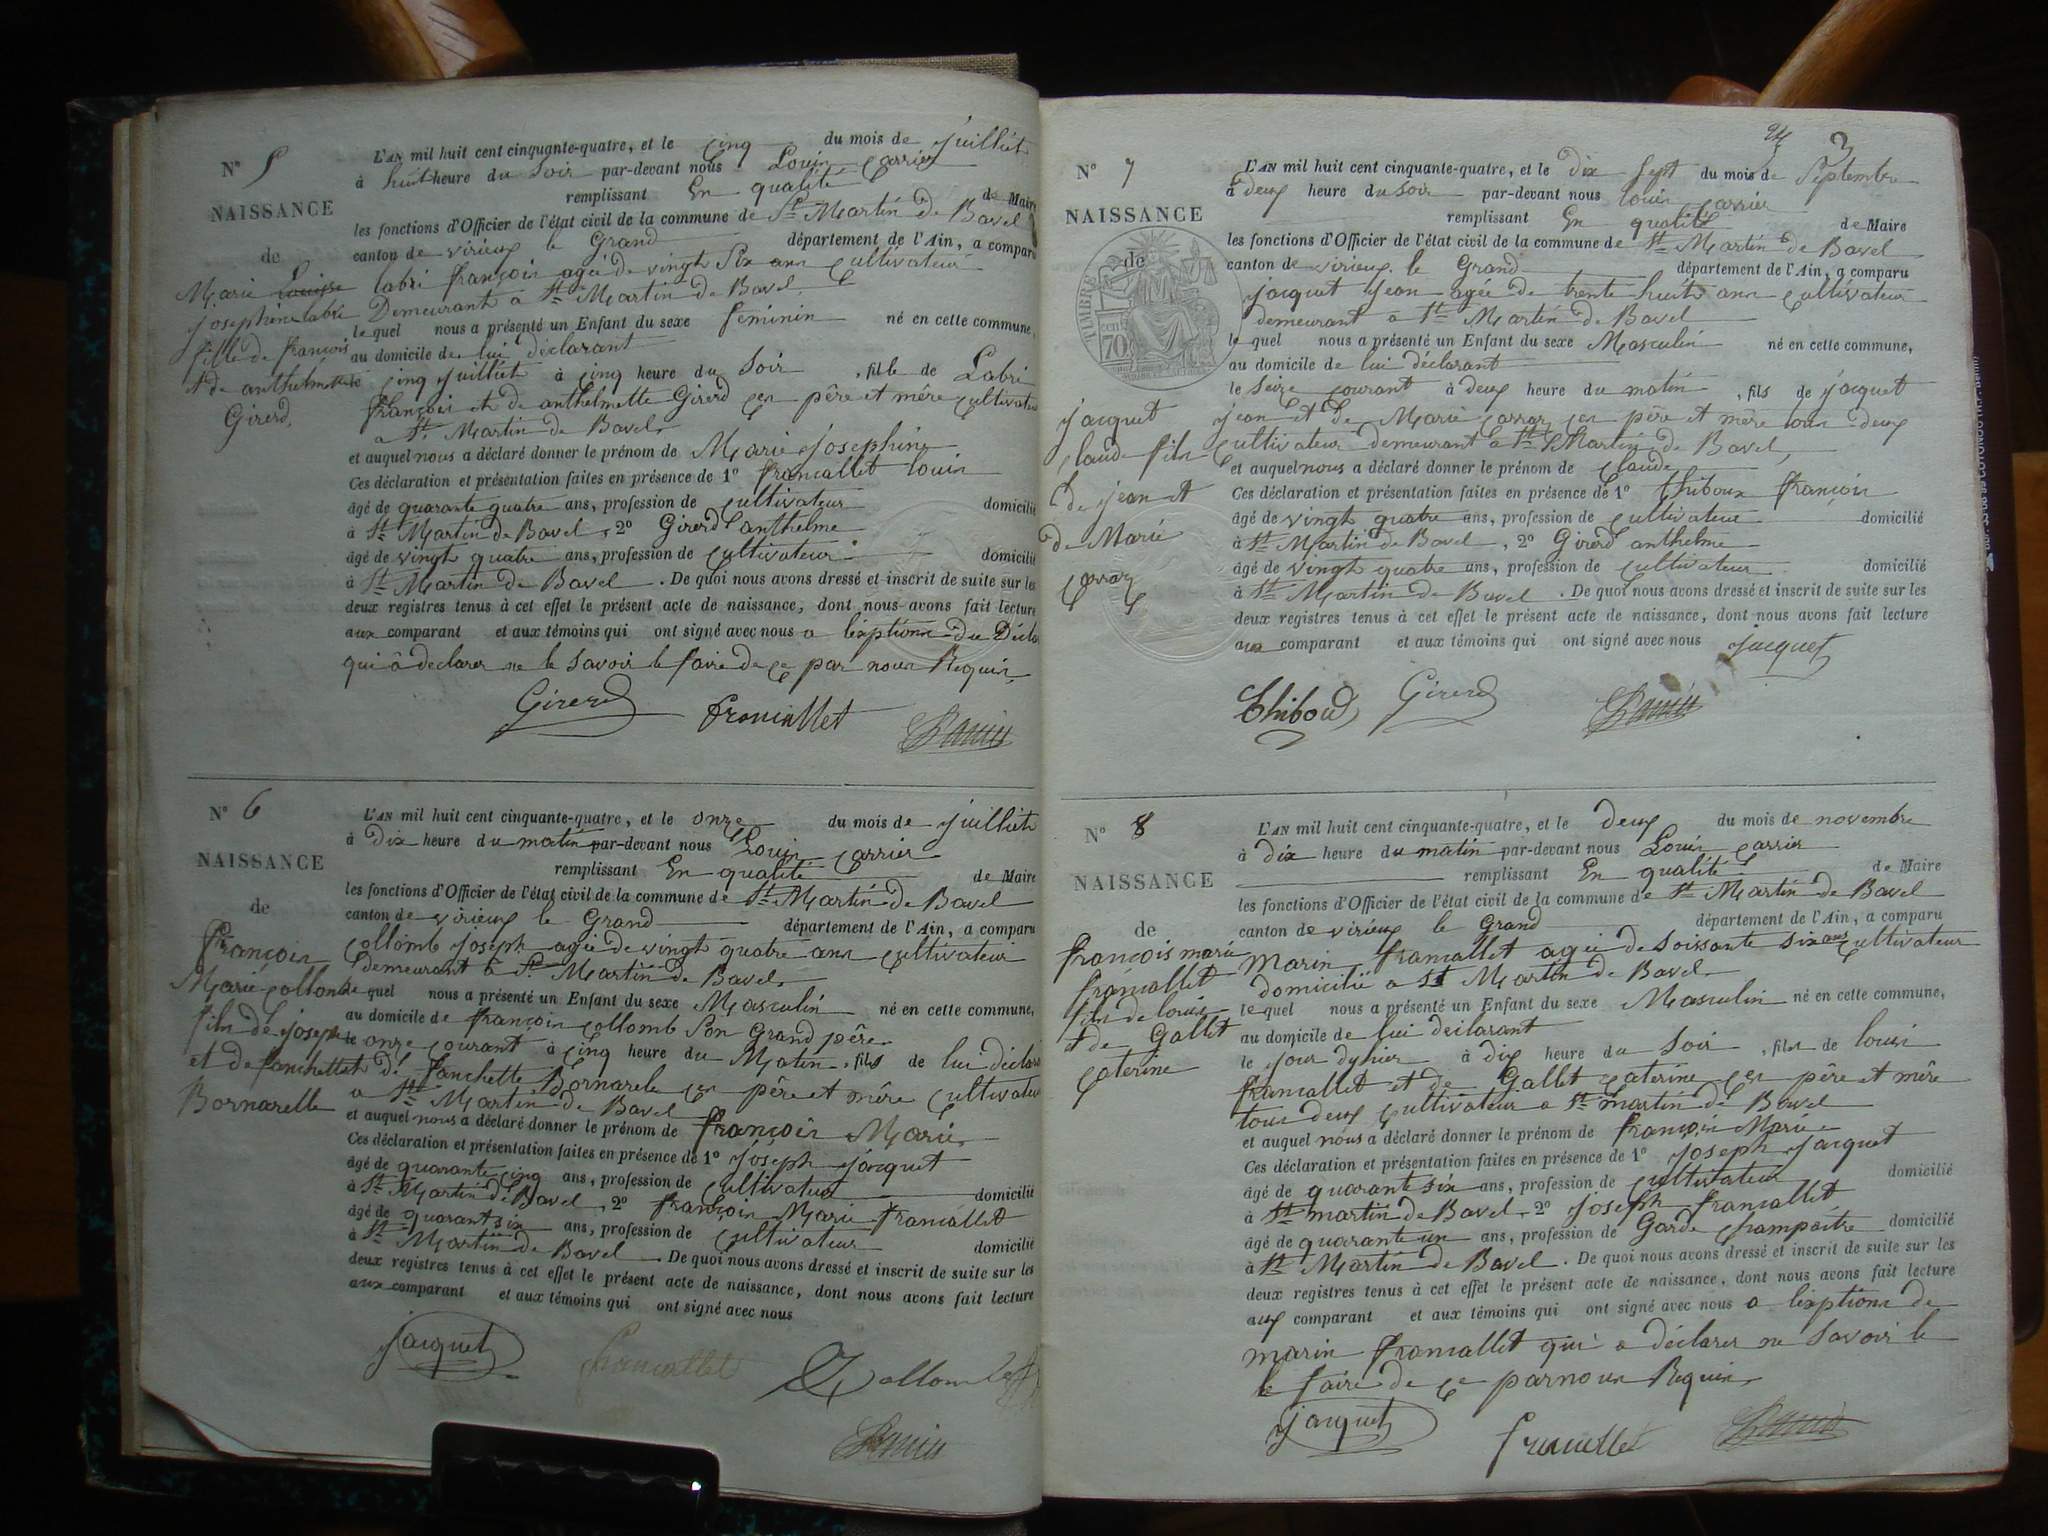 N° 5
NAISSANCE
de
Marie Louise
josephine labri
fille de françois
et de anthelmette
Girerd.
L'AN mil huit cent cinquante-quatre, et le cinq du mois de juilliet
à huit heure du soir par-devant nous Louis Carrier
remplissant En qualité de Maire
les fonctions d'Officier de l'état civil de la commune de St Martin de Bavel
canton de virieux le Grand département de l'Ain, a comparu
labri françois agée de vingt six ans Cultivateur
Demeurant a St Martin de Bavel
le quel nous a présenté un Enfant du sexe féminin né en cette commune,
au domicile de lui déclarant
le cinq juilliet à cinq heure du soir, fille de Labri
françois et de anthelmette Girerd ces père et mère cultivateur
a St Martin de Bavel
et auquel nous a déclaré donner le prénom de Marie josephine
Ces déclaration et présentation faites en présence de 1° francallet louis
âgé de quarante quatre ans, profession de cultivateur domicilié
à St Martin de Bavel, 2° Girerd anthelme
âgé de vingt quatre ans, profession de cultivateur domicilié
à St Martin de Bavel. De quoi nous avons dressé et inscrit de suite sur les
deux registres tenus à cet effet le présent acte de naissance, dont nous avons fait lecture
aux comparant et aux témoins qui ont signé avec nous a lexptions du Décla
qui à déclarer ne le savoir le faire de ce par nous Requis
Girerd francallet
N° 6
NAISSANCE
de
françois
Marie collomb
fils de joseph
et de fanchette
Bornarelle
L'AN mil huit cent cinquante-quatre, et le onze du mois de juilliet
à Dix heure du matin par-devant nous Louis Carrier
remplissant En qualité de Maire
les fonctions d'Officier de l'état civil de la commune de St Martin de Bavel
canton de virieux le Grand département de l'Ain, a comparu
Collomb joseph agée de vingt quatre ans cultivateur
demeurant à St Martin de Bavel
le quel nous a présenté un Enfant du sexe Masculin né en cette commune,
au domicile de françois collomb son Grand père
le onze courant à cinq heure du Matin, fils de lui déclara
et de fanchette Bornarele ces père et mère cultivateur
a St Martin de Bavel
et auquel nous a déclaré donner le prénom de françois Marie
Ces déclaration et présentation faites en présence de 1° joseph jacquet
âgé de quarante cinq ans, profession de cultivateur domicilié
à St Martin de Bavel, 2° françois Marie francallet
âgé de quarant six ans, profession de cultivateur domicilié
à St Martin de Bavel. De quoi nous avons dressé et inscrit de suite sur les
deux registres tenus à cet effet le présent acte de naissance, dont nous avons fait lecture
aux comparant et aux témoins qui ont signé avec nous
jacquet francallet Collomb
3
N° 7
NAISSANCE
de
TIMBRE
70 cent
jacquet
claude fils
de jean et
de Marie
L'AN mil huit cent cinquante-quatre, et le dix sept du mois de Septembre
à deux heure du soir par-devant nous louis carrier
remplissant En qualité de Maire
les fonctions d'Officier de l'état civil de la commune de St Martin de Bavel
canton de virieux le Grand département de l'Ain, a comparu
jacquet jean agée de trente huit ans cultivateur
demeurant a St Martin de Bavel
le quel nous a présenté un Enfant du sexe Masculin né en cette commune,
au domicile de lui déclarant
le seize courant à deux heure du matin, fils de jacquet
jean et de Marie ces père et mère tous deux
cultivateur demeurant a St Martin de Bavel,
et auquel nous a déclaré donner le prénom de claude
Ces déclaration et présentation faites en présence de 1° thiboux françois
âgé de vingt quatre ans, profession de cultivateur domicilié
à St Martin de Bavel, 2° Girerd anthelme
âgé de vingt quatre ans, profession de cultivateur domicilié
à St Martin de Bavel. De quoi nous avons dressé et inscrit de suite sur les
deux registres tenus à cet effet le présent acte de naissance, dont nous avons fait lecture
aux comparant et aux témoins qui ont signé avec nous jacquet
Thiboud Girerd
N° 8
NAISSANCE
de
françois marie
francallet
fils de louis
et de Gallet
caterine
L'AN mil huit cent cinquante-quatre, et le deux du mois de novembre
à dix heure du matin par-devant nous Louis Carrier
remplissant En qualité de Maire
les fonctions d'Officier de l'état civil de la commune de St Martin de Bavel
canton de virieux le Grand département de l'Ain, a comparu
Marin francallet agée de soissante six ans cultivateur
domicilié a St Martin de Bavel
le quel nous a présenté un Enfant du sexe Masculin né en cette commune,
au domicile de lui déclarant
le jour dyhier à dix heure du soir, fils de louis
francallet et de Gallet caterine ces père et mère
tous deux cultivateur a St martin de Bavel
et auquel nous a déclaré donner le prénom de françois Marie
Ces déclaration et présentation faites en présence de 1° joseph jacquet
âgé de quarante six ans, profession de cultivateur domicilié
à St martin de Bavel, 2° joseph francallet
âgé de quarante un ans, profession de Garde champaitre domicilié
à St Martin de Bavel. De quoi nous avons dressé et inscrit de suite sur les
deux registres tenus à cet effet le présent acte de naissance, dont nous avons fait lecture
aux comparant et aux témoins qui ont signé avec nous a lexptions de
marin francallet qui a déclarer ne savoir le
le faire de ce par nous Requis
jacquet francallet